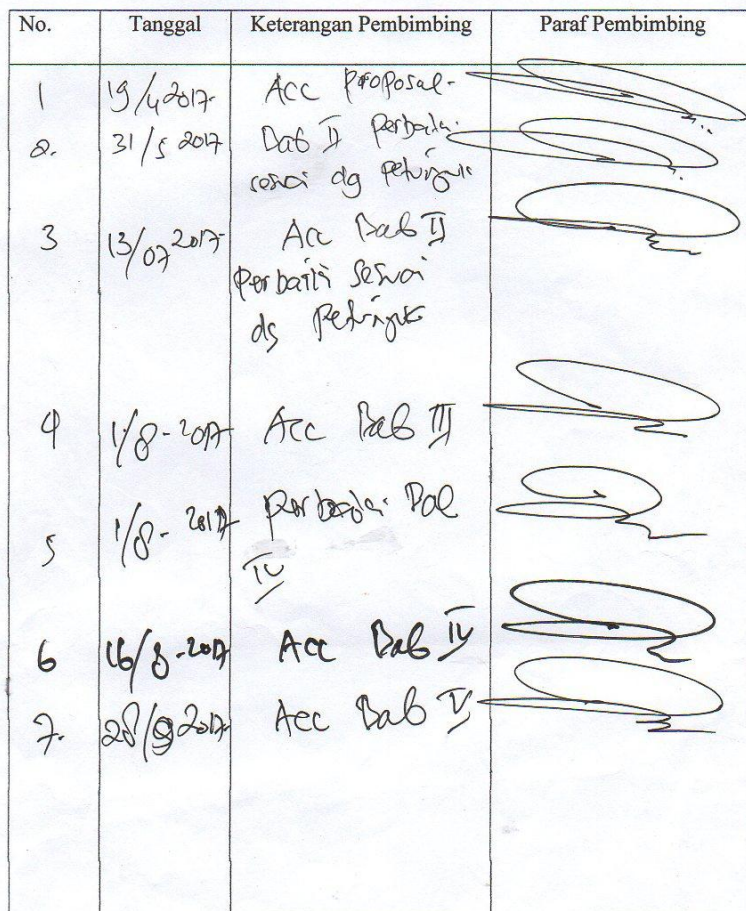 No. Tanggal Keterangan Pembimbing Paraf Pembimbing
1 19/4 2017 Acc proposal-
2. 31/5 2017 Bab II perbaiki
sesuai dg petunjuk
3 13/07 2017 Acc Bab II
Perbaiki sesuai
dg petunjuk
4 1/8-2017 Acc Bab III
5 1/8-2017 perbaiki Bab
IV
6 16/8-2017 Acc Bab IV
7. 28/8 2017 Acc Bab V